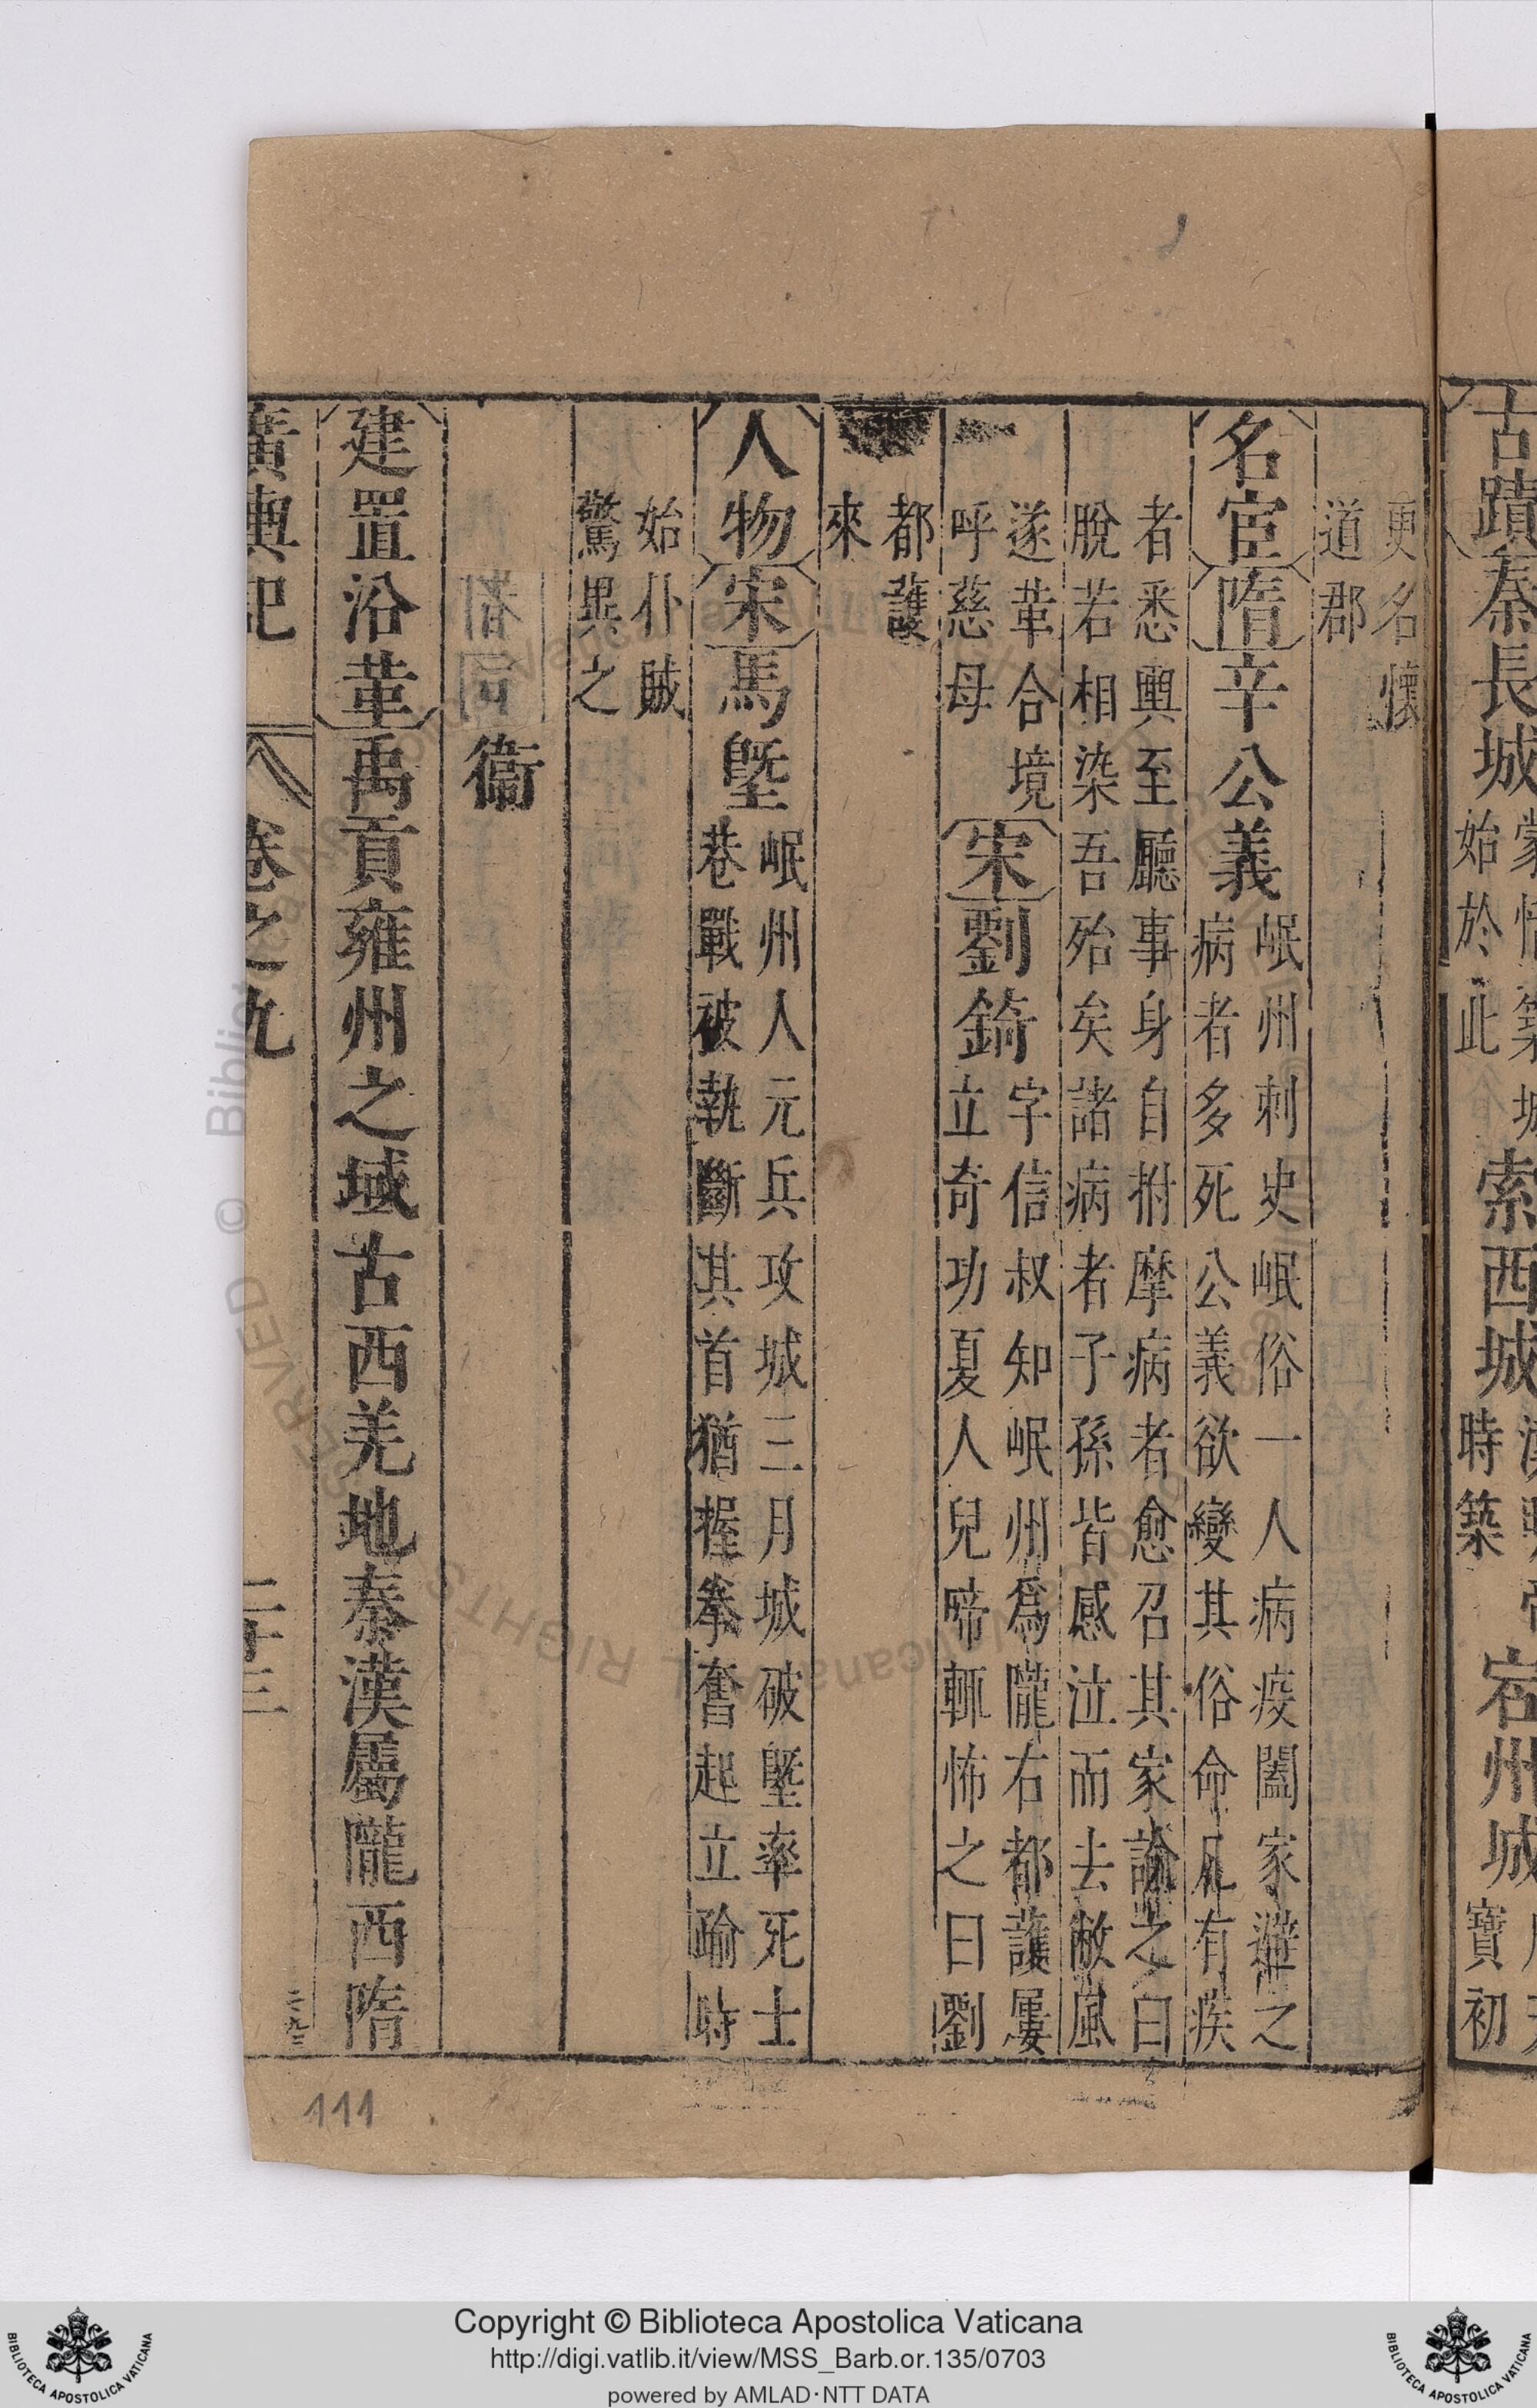 古蹟秦長城
始於此
索西城
時築
宕州城
寶初
更名懷
道郡
名宦隋辛公義
岷州刺史岷俗一人病疫闔家避之
病者多死公義欲變其俗命凡有疾
者悉輿至廳事身自拊摩病者愈召其家諭之曰
脫若相染吾殆矣諸病者子孫皆感泣而去敝風
遂革合境
呼慈母
宋劉錡
字信叔知岷州爲隴右都護屢
立奇功夏人兒啼輒怖之曰劉
都護
來
人物宋馬塈
岷州人元兵攻城三月城破塈率死士
巷戰被執斷其首猶握拳奮起立踰時
始仆賊
驚異之
衞
建置沿革禹貢雍州之域古西羌地秦漢屬隴西隋
廣輿記 卷之九 二十三
111
© Biblioteca Apostolica Vaticana ALL RIGHTS RESERVED
Copyright © Biblioteca Apostolica Vaticana
http://digi.vatlib.it/view/MSS_Barb.or.135/0703
powered by AMLAD·NTT DATA
BIBLIOTECA APOSTOLICA VATICANA
BIBLIOTECA APOSTOLICA VATICANA